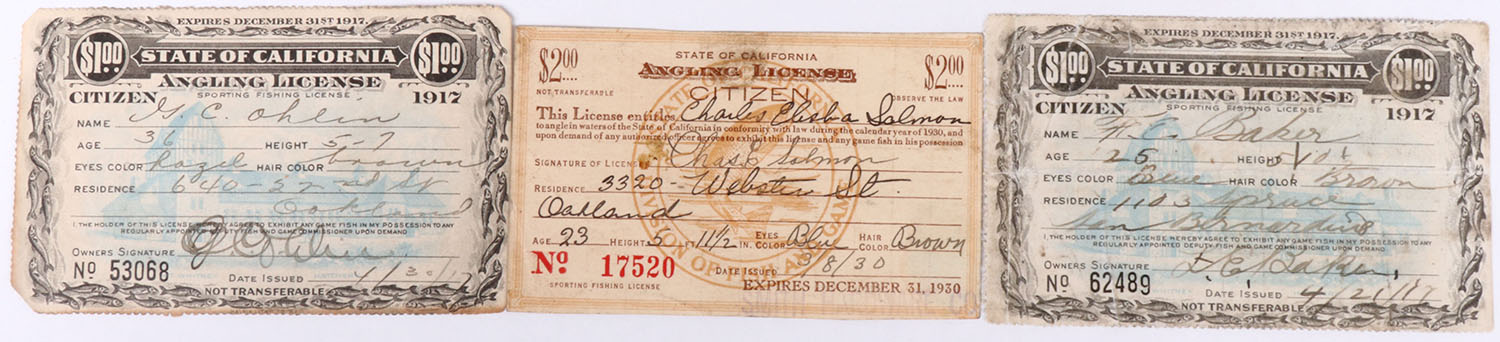 EXPIRES DECEMBER 31ST 1917.
$1.00 STATE OF CALIFORNIA $1.00
ANGLING LICENSE
CITIZEN SPORTING FISHING LICENSE 1917
NAME G. C. Ohlin
AGE 36 HEIGHT 5-7
EYES COLOR Hazel HAIR COLOR brown
RESIDENCE 640-32nd St
Oakland
I, THE HOLDER OF THIS LICENSE HEREBY AGREE TO EXHIBIT ANY GAME FISH IN MY POSSESSION TO ANY
REGULARLY APPOINTED DEPUTY FISH AND GAME COMMISSIONER UPON DEMAND
OWNERS SIGNATURE G C Ohlin
No 53068 DATE ISSUED 4/30/17
NOT TRANSFERABLE
STATE OF CALIFORNIA
$2.00 ANGLING LICENSE $2.00
NOT TRANSFERABLE CITIZEN OBSERVE THE LAW
This License entitles Charles Elisha Salmon
to angle in waters of the State of California in conformity with law during the calendar year of 1930, and
upon demand of any authorized officer agrees to exhibit this license and any game fish in his possession
SIGNATURE OF LICENSEE Chas E Salmon
RESIDENCE 3320 - Webster St.
Oakland
AGE 23 HEIGHT 5 FT 11 1/2 IN. EYES COLOR Blue HAIR COLOR Brown
No 17520 DATE ISSUED 3/8/30
SPORTING FISHING LICENSE EXPIRES DECEMBER 31, 1930
EXPIRES DECEMBER 31ST 1917.
$1.00 STATE OF CALIFORNIA $1.00
ANGLING LICENSE
CITIZEN SPORTING FISHING LICENSE 1917
NAME Baker
AGE 25 HEIGHT
EYES COLOR Blue HAIR COLOR Brown
RESIDENCE 1103 Spruce
San Bernardino
I, THE HOLDER OF THIS LICENSE HEREBY AGREE TO EXHIBIT ANY GAME FISH IN MY POSSESSION TO ANY
REGULARLY APPOINTED DEPUTY FISH AND GAME COMMISSIONER UPON DEMAND
OWNERS SIGNATURE E Baker
No 62489 DATE ISSUED 4/21/17
NOT TRANSFERABLE